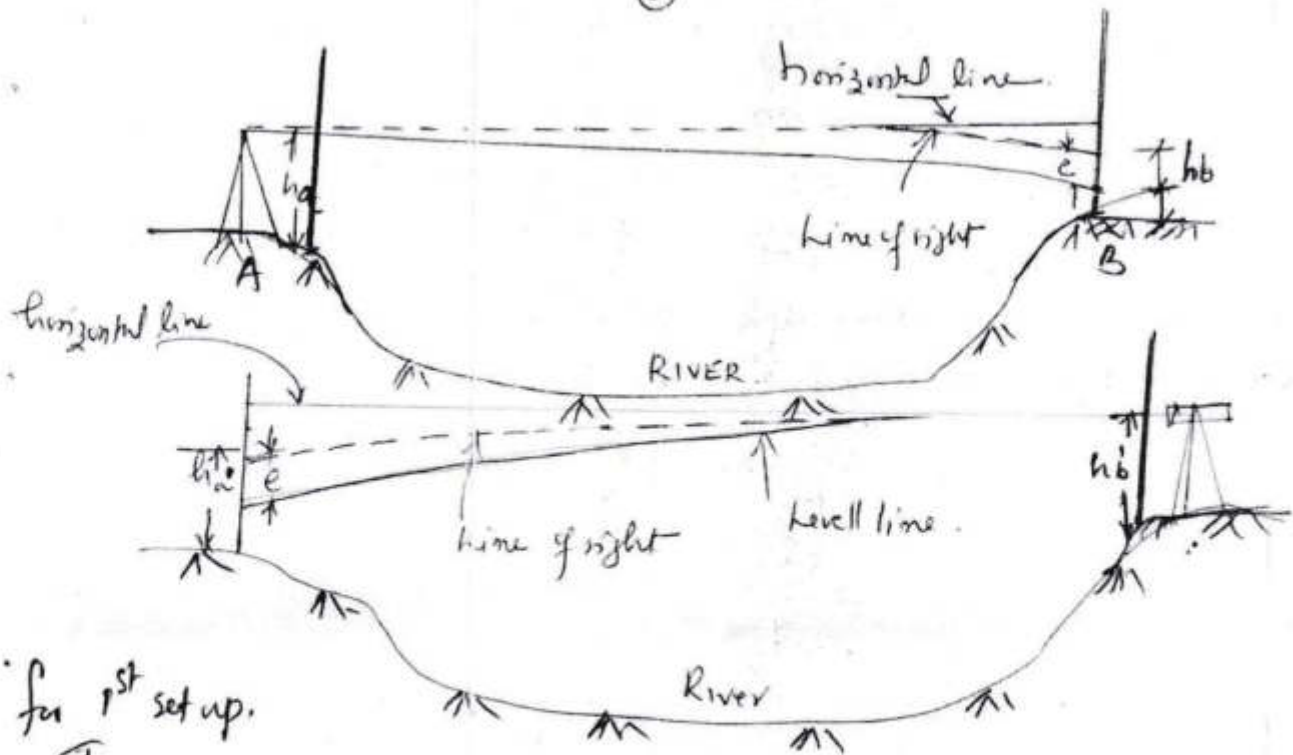 horizontal line.
ha
e
hb
Line of sight
A
B
horizontal line
RIVER.
h'a
e
h'b
Line of sight
Levell line.
River
for 1st set up.